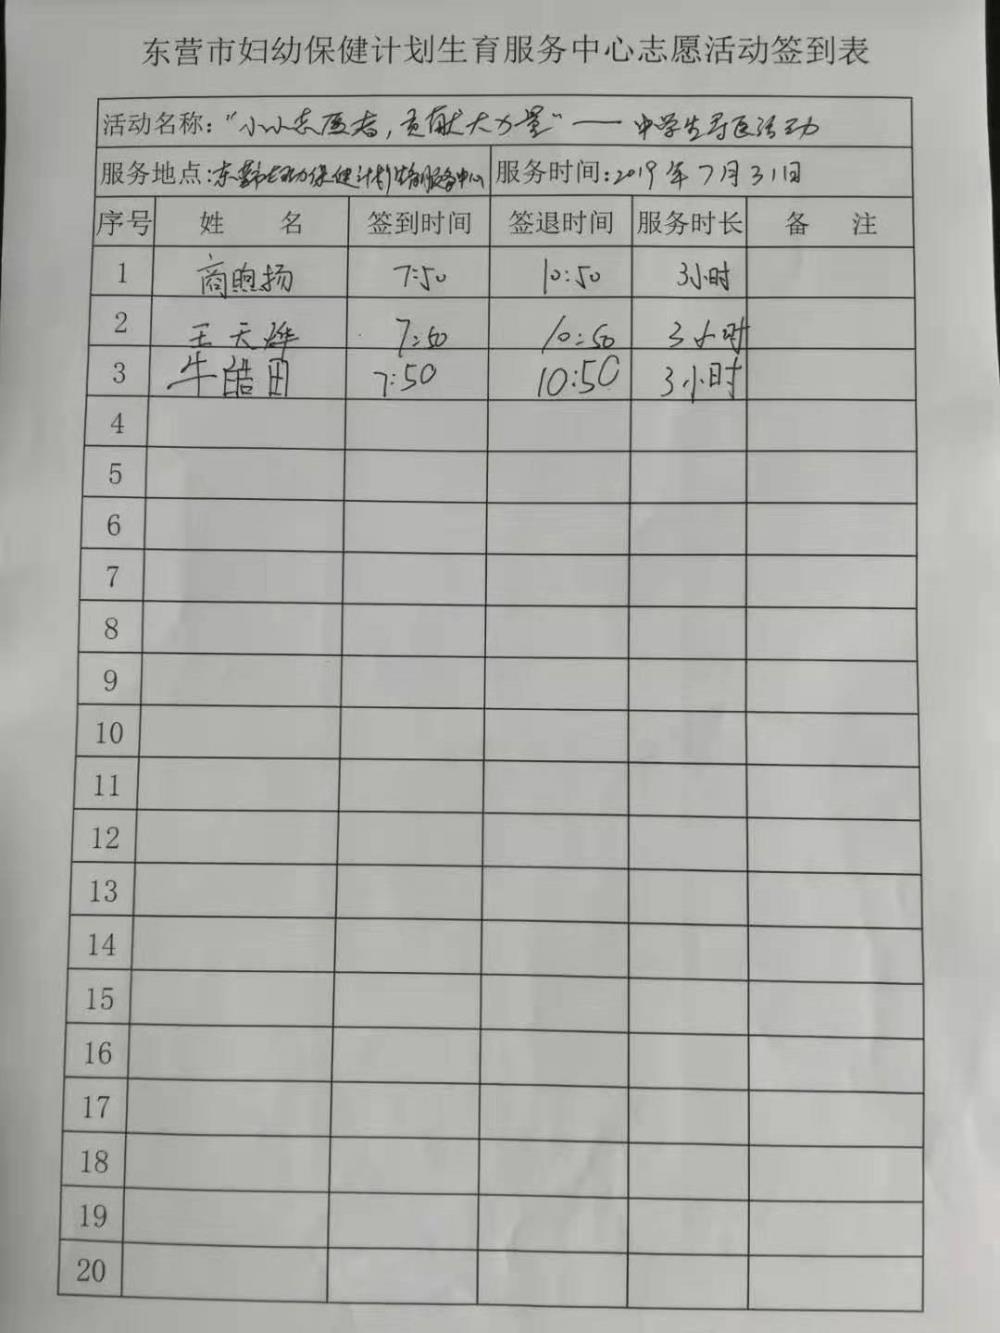 东营市妇幼保健计划生育服务中心志愿活动签到表
活动名称：“小小志愿者，贡献大力量”——中学生导医活动
服务地点：东营市妇幼保健计划生育服务中心 服务时间：2019年7月31日
序号 姓 名 签到时间 签退时间 服务时长 备 注
1 商煦扬 7:50 10:50 3小时
2 王天烨 7:50 10:50 3小时
3 牛皓田 7:50 10:50 3小时
4
5
6
7
8
9
10
11
12
13
14
15
16
17
18
19
20